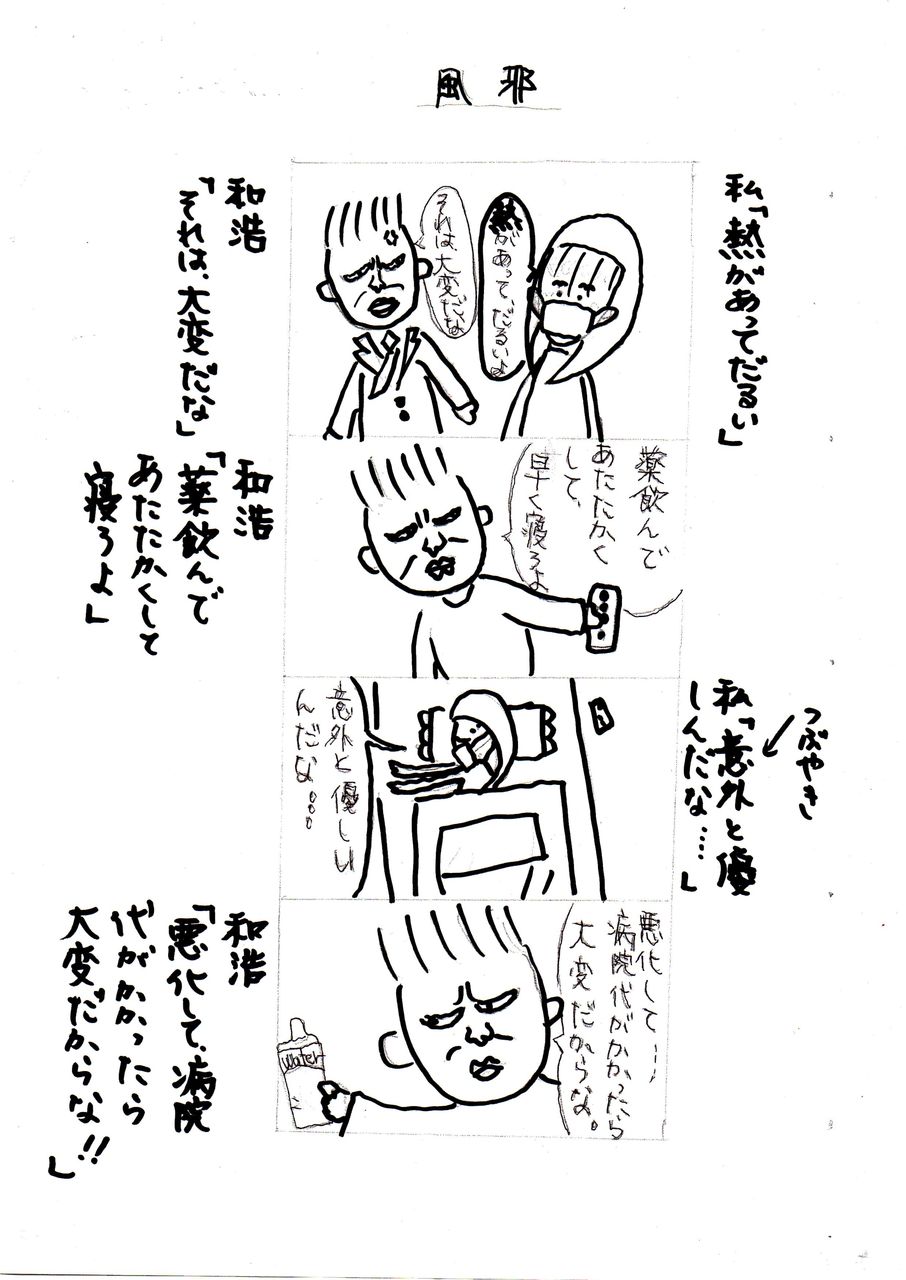 風邪
私「熱があってだるい」
熱があって、だるいよ
それは、大変だな
和浩
「それは、大変だな」
薬飲んで
あたたかく
して、
早く寝ろよ
和浩
「薬飲んで
あたたかくして
寝ろよ」
つぶやき
私「意外と優
しんだな……」
意外と優しい
んだな…
悪化して……
病院代がかかったら
大変だからな。
Water
和浩
「悪化して、病院
代がかかったら
大変だからな!!
」